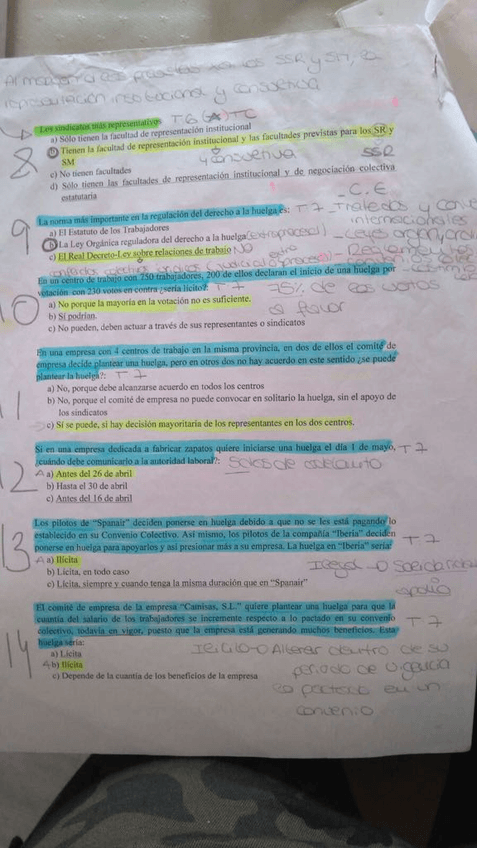 SSR y SM, es
institucional y consultiva
T6 TC
Los sindicatos más representativos
a) Sólo tienen la facultad de representación institucional
b) Tienen la facultad de representación institucional y las facultades previstas para los SR y
SM
c) No tienen facultades
d) Sólo tienen las facultades de representación institucional y de negociación colectiva
estatutaria
8
y consultiva SSR
- C.E
9
La norma más importante en la regulación del derecho a la huelga es: T7 - Tratados y
internacionales
a) El Estatuto de los Trabajadores
b) La Ley Orgánica reguladora del derecho a la huelga
c) El Real Decreto-Ley sobre relaciones de trabajo NO
En un centro de trabajo con 750 trabajadores, 200 de ellos declaran el inicio de una huelga por
votación con 230 votos en contra ¿sería lícito?: T7 75% de los
a favor
10
a) No porque la mayoría en la votación no es suficiente.
b) Sí podrían.
c) No pueden, deben actuar a través de sus representantes o sindicatos
En una empresa con 4 centros de trabajo en la misma provincia, en dos de ellos el comité de
empresa decide plantear una huelga, pero en otros dos no hay acuerdo en este sentido ¿se puede
plantear la huelga?: T7
11
a) No, porque debe alcanzarse acuerdo en todos los centros
b) No, porque el comité de empresa no puede convocar en solitario la huelga, sin el apoyo de
los sindicatos
c) Sí se puede, si hay decisión mayoritaria de los representantes en los dos centros.
Si en una empresa dedicada a fabricar zapatos quiere iniciarse una huelga el día 1 de mayo, T7
¿cuándo debe comunicarlo a la autoridad laboral?:
12
a) Antes del 26 de abril
b) Hasta el 30 de abril
c) Antes del 16 de abril
13
Los pilotos de "Spanair" deciden ponerse en huelga debido a que no se les está pagando lo
establecido en su Convenio Colectivo. Así mismo, los pilotos de la compañía "Iberia" deciden
ponerse en huelga para apoyarlos y así presionar más a su empresa. La huelga en "Iberia" sería: T7
a) Ilícita
b) Lícita, en todo caso
c) Lícita, siempre y cuando tenga la misma duración que en "Spanair"
apoyo
El comité de empresa de la empresa "Camisas, S.L." quiere plantear una huelga para que la
cuantía del salario de los trabajadores se incremente respecto a lo pactado en su convenio T7
colectivo, todavía en vigor, puesto que la empresa está generando muchos beneficios. Esta
huelga sería:
14
a) Lícita
b) Ilícita
c) Depende de la cuantía de los beneficios de la empresa
Alterar dentro de su
periodo de vigencia
lo pactado en un
convenio